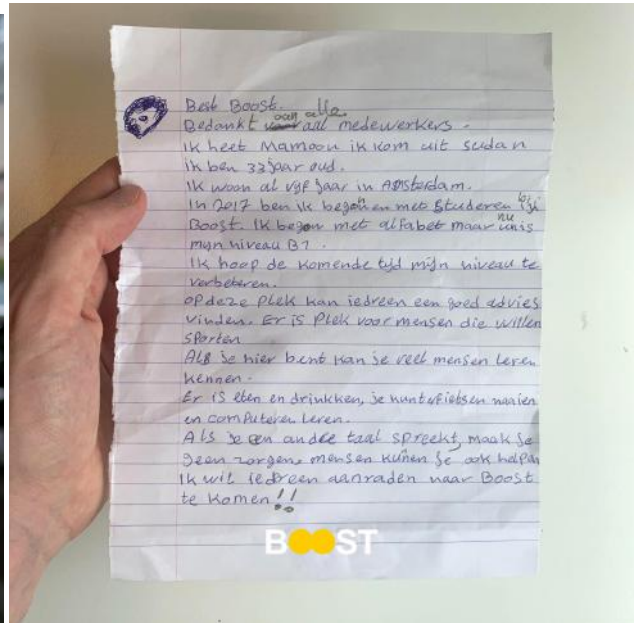 Best Boost.
Bedankt aan alle medewerkers.
Ik heet Mamoon ik kom uit sudan
ik ben 33 jaar oud.
Ik woon al vijf jaar in Amsterdam.
In 2017 ben ik begonnen met studeren bij
Boost. Ik begon met alfabet maar nu is
mijn niveau B1.
Ik hoop de komende tijd mijn niveau te
verbeteren.
op deze Plek kan iedreen een goed advies
vinden. Er is Plek voor mensen die willen
sporten
Als je hier bent kan je veel mensen leren
kennen.
Er is eten en drinkken, je kunt fietsen naaien
en computeren leren.
Als je een andee taal spreekt, maak je
geen zorgen, mensen kunnen je ook helpen
Ik wil iedreen aanraden naar Boost
te komen!!
BOOST